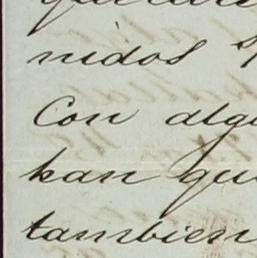 nidos
Con algu
han qui
tambien